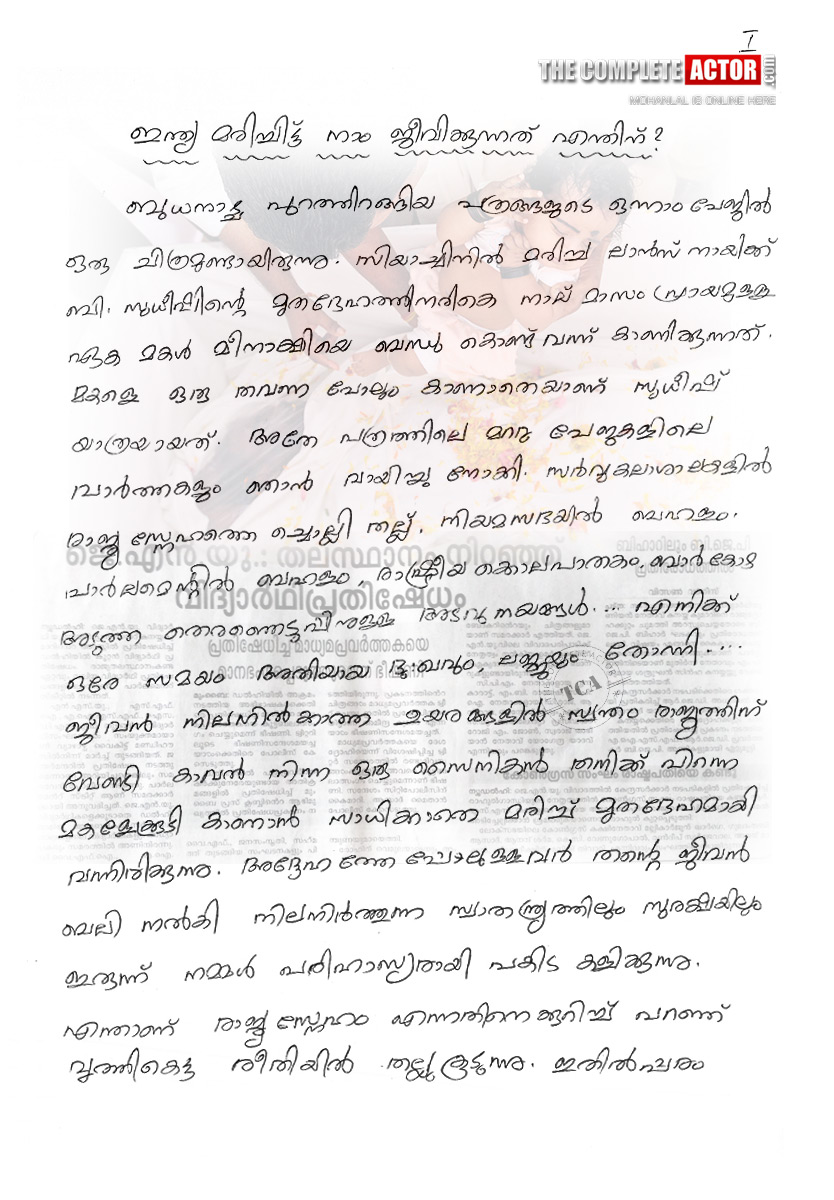 I
THE COMPLETE ACTOR .com
MOHANLAL IS ONLINE HERE
ഇന്ത്യ മരിച്ചിട്ട് നാം ജീവിക്കുന്നത് എന്തിന്?
ബുധനാഴ്ച പുറത്തിറങ്ങിയ പത്രങ്ങളുടെ ഒന്നാംപേജിൽ
ഒരു ചിത്രമുണ്ടായിരുന്നു. സിയാച്ചിനിൽ മരിച്ച ലാൻസ് നായിക്ക്
ബി. സുധീഷിന്റെ മൃതദേഹത്തിനരികെ നാല് മാസം പ്രായമുള്ള
ഏക മകൾ മീനാക്ഷിയെ ബന്ധു കൊണ്ട് വന്ന് കാണിക്കുന്നത്.
മകളെ ഒരു തവണ പോലും കാണാതെയാണ് സുധീഷ്
യാത്രയായത്. അതേ പത്രത്തിലെ മറ്റു പേജുകളിലെ
വാർത്തകളും ഞാൻ വായിച്ചു നോക്കി. സർവ്വകലാശാലകളിൽ
രാജ്യസ്നേഹത്തെ ചൊല്ലി തല്ല്, നിയമസഭയിൽ ബഹളം.
ജെ.എൻ.യു.: തലസ്ഥാനം നിറഞ്ഞ്
വിദ്യാർഥിപ്രതിഷേധം
ബിഹാറിലും ബി.ജെ.പി
പാർലമെന്റിൽ ബഹളം, രാഷ്ട്രീയ കൊലപാതകം, ബാർ കോഴ
അടുത്ത തെരഞ്ഞെടുപ്പിനുള്ള അടവു നയങ്ങൾ... എനിക്ക്
പ്രതിഷേധിച്ച് മാധ്യമപ്രവർത്തകയെ
ഒരേ സമയം അതിയായ ദുഃഖവും, ലജ്ജയും തോന്നി....
TCA
ജീവൻ നിലനിൽകാത്ത ഉയരങ്ങളിൽ സ്വന്തം രാജ്യത്തിന്
വേണ്ടി കാവൽ നിന്ന ഒരു സൈനികൻ തനിക്ക് പിറന്ന
മകളെക്കൂടി കാണാൻ സാധിക്കാതെ മരിച്ച് മൃതദേഹമാകി
വന്നിരിക്കുന്നു. അദ്ദേഹത്തേ പോലുള്ളവർ തന്റെ ജീവൻ
ബലി നൽകി നിലനിർത്തുന്ന സ്വാതന്ത്ര്യത്തിലും സുരക്ഷയിലും
ഇരുന്ന് നമ്മൾ പരിഹാസ്യരായി പകിട കളിക്കുന്നു.
എന്താണ് രാജ്യസ്നേഹം എന്നതിനെക്കുറിച്ച് പറഞ്ഞ്
വൃത്തികെട്ട രീതിയിൽ തല്ലുകൂടുന്നു. ഇതിൽപ്പരം